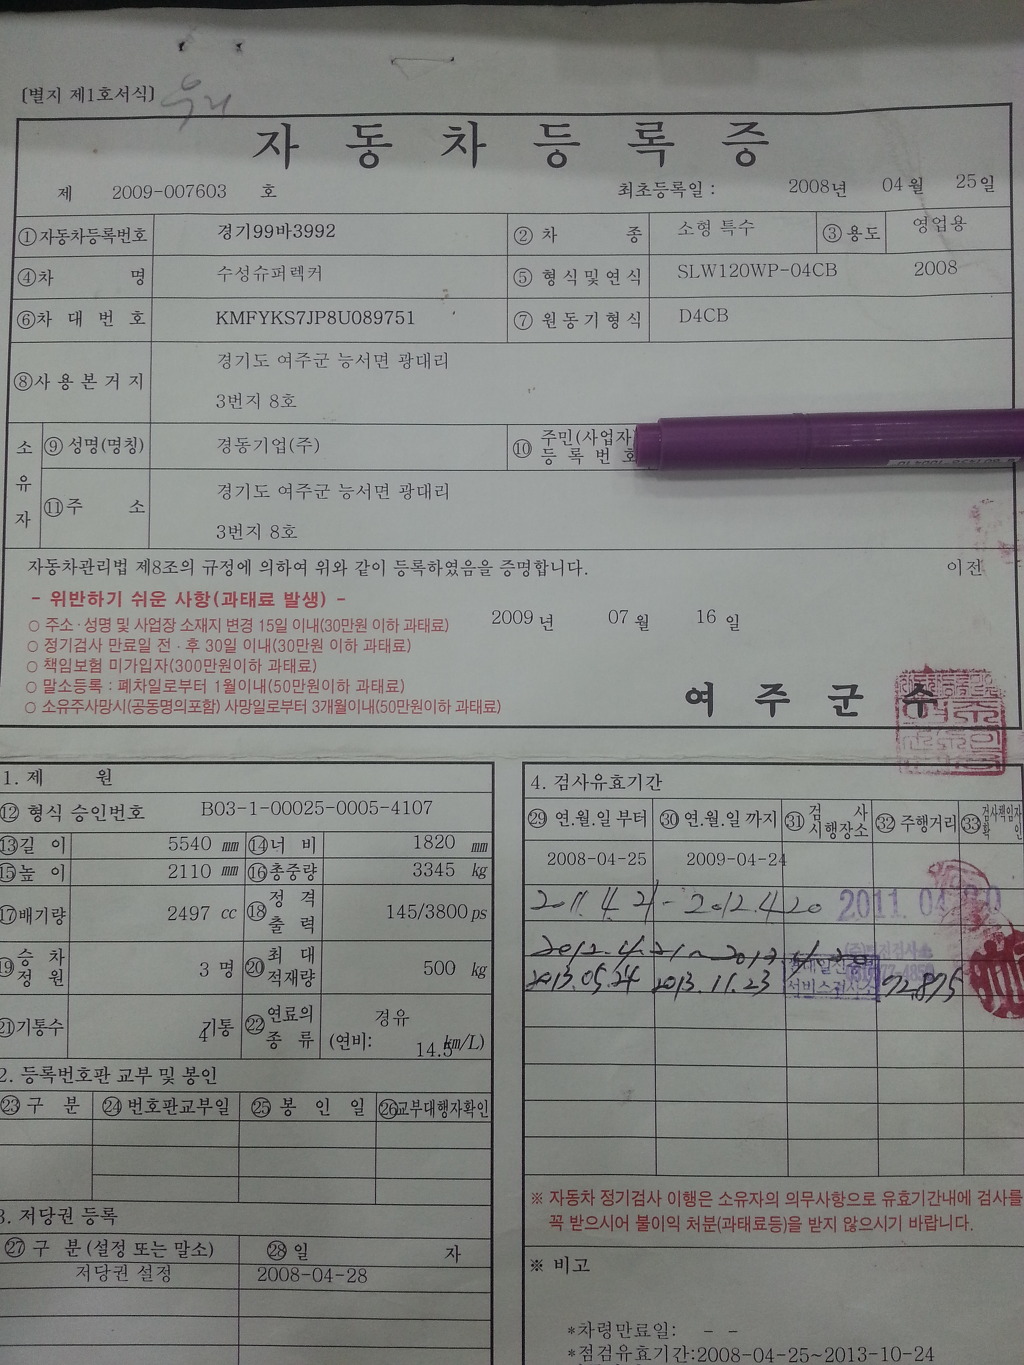 [별지 제1호서식]
우리
자동차등록증
제 2009-007603 호 최초등록일 : 2008년 04월 25일
①자동차등록번호 경기99바3992 ②차 종 소형 특수 ③용도 영업용
④차 명 수성슈퍼렉커 ⑤형식및연식 SLW120WP-04CB 2008
⑥차대번호 KMFYKS7JP8U089751 ⑦원동기형식 D4CB
⑧사용본거지 경기도 여주군 능서면 광대리
3번지 8호
소유자 ⑨성명(명칭) 경동기업(주) ⑩주민(사업자
등록번호
⑪주 소 경기도 여주군 능서면 광대리
3번지 8호
자동차관리법 제8조의 규정에 의하여 위와 같이 등록하였음을 증명합니다. 이전
- 위반하기 쉬운 사항(과태료 발생) -
2009년 07월 16일
○ 주소·성명 및 사업장 소재지 변경 15일 이내(30만원 이하 과태료)
○ 정기검사 만료일 전·후 30일 이내(30만원 이하 과태료)
○ 책임보험 미가입자(300만원이하 과태료)
○ 말소등록 : 폐차일로부터 1월이내(50만원이하 과태료)
○ 소유주사망시(공동명의포함) 사망일로부터 3개월이내(50만원이하 과태료)
여주군수
1. 제 원
⑫형식 승인번호 B03-1-00025-0005-4107
⑬길 이 5540 ㎜ ⑭너 비 1820 ㎜
⑮높 이 2110 ㎜ ⑯총중량 3345 kg
⑰배기량 2497 cc ⑱정격출력 145/3800ps
⑲승차정원 3 명 ⑳최대적재량 500 kg
㉑기통수 4기통 ㉒연료의종류 경유
(연비: 14.5km/L)
2. 등록번호판 교부 및 봉인
㉓구 분 ㉔번호판교부일 ㉕봉인일 ㉖교부대행자확인
3. 저당권 등록
㉗구 분(설정 또는 말소) ㉘일 자
저당권 설정 2008-04-28
4. 검사유효기간
㉙연.월.일 부터 ㉚연.월.일 까지 ㉛검사시행장소 ㉜주행거리 ㉝검사책임자확인
2008-04-25 2009-04-24
2011. 4. 21 - 2012. 4. 20 2011. 04.
2012. 4. 21 ~
2013. 05. 24 2013. 11. 23 72,875
※ 자동차 정기검사 이행은 소유자의 의무사항으로 유효기간내에 검사를
꼭 받으시어 불이익 처분(과태료등)을 받지 않으시기 바랍니다.
※ 비고
*차령만료일: - -
*점검유효기간:2008-04-25~2013-10-24